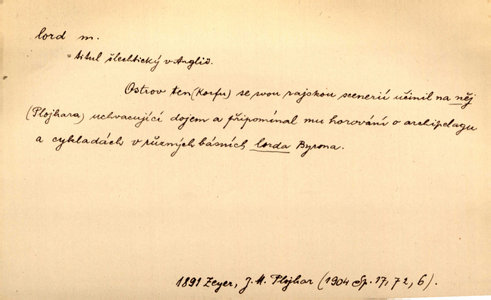 lord m.
titul šlechtický v Anglii.
Ostrov ten (Korfu) se svou rajskou scenerií učinil na něj
(Plojhara) uchvacující dojem a připomínal mu horování o archipelagu
a cykladách v různých básních lorda Byrona.
1891 Zeyer, J. M. Plojhar (1904 Sp. 17, 72, 6).